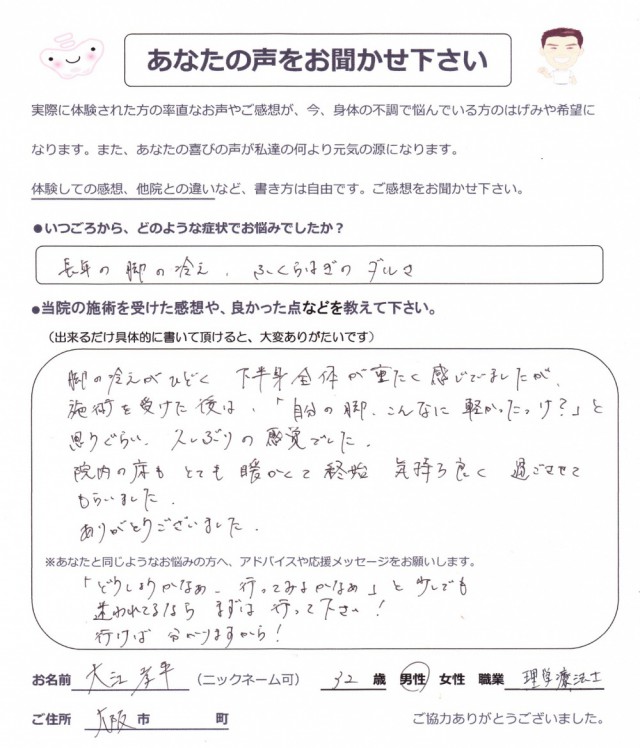 あなたの声をお聞かせ下さい
実際に体験された方の率直なお声やご感想が、今、身体の不調で悩んでいる方のはげみや希望に
なります。また、あなたの喜びの声が私達の何より元気の源になります。
体験しての感想、他院との違いなど、書き方は自由です。ご感想をお聞かせ下さい。
●いつごろから、どのような症状でお悩みでしたか？
長年の脚の冷え、ふくらはぎのダルさ
●当院の施術を受けた感想や、良かった点などを教えて下さい。
（出来るだけ具体的に書いて頂けると、大変ありがたいです）
脚の冷えがひどく 下半身全体が重たく感じていましたが、
施術を受けた後は、「自分の脚、こんなに軽かったっけ？」と
思うぐらい、久しぶりの感覚でした。
院内の床も とても暖かくて終始 気持ち良く 過ごさせて
もらいました。
ありがとうございました。
※あなたと同じようなお悩みの方へ、アドバイスや応援メッセージをお願いします。
「どうしようかなぁ、行ってみようかなぁ」と少しでも
迷われてるなら まずは行って下さい！
行けば 分かりますから！
お名前 大江孝平 （ニックネーム可） 32 歳 男性 女性 職業 理学療法士
ご住所 大阪 市 町 ご協力ありがとうございました。